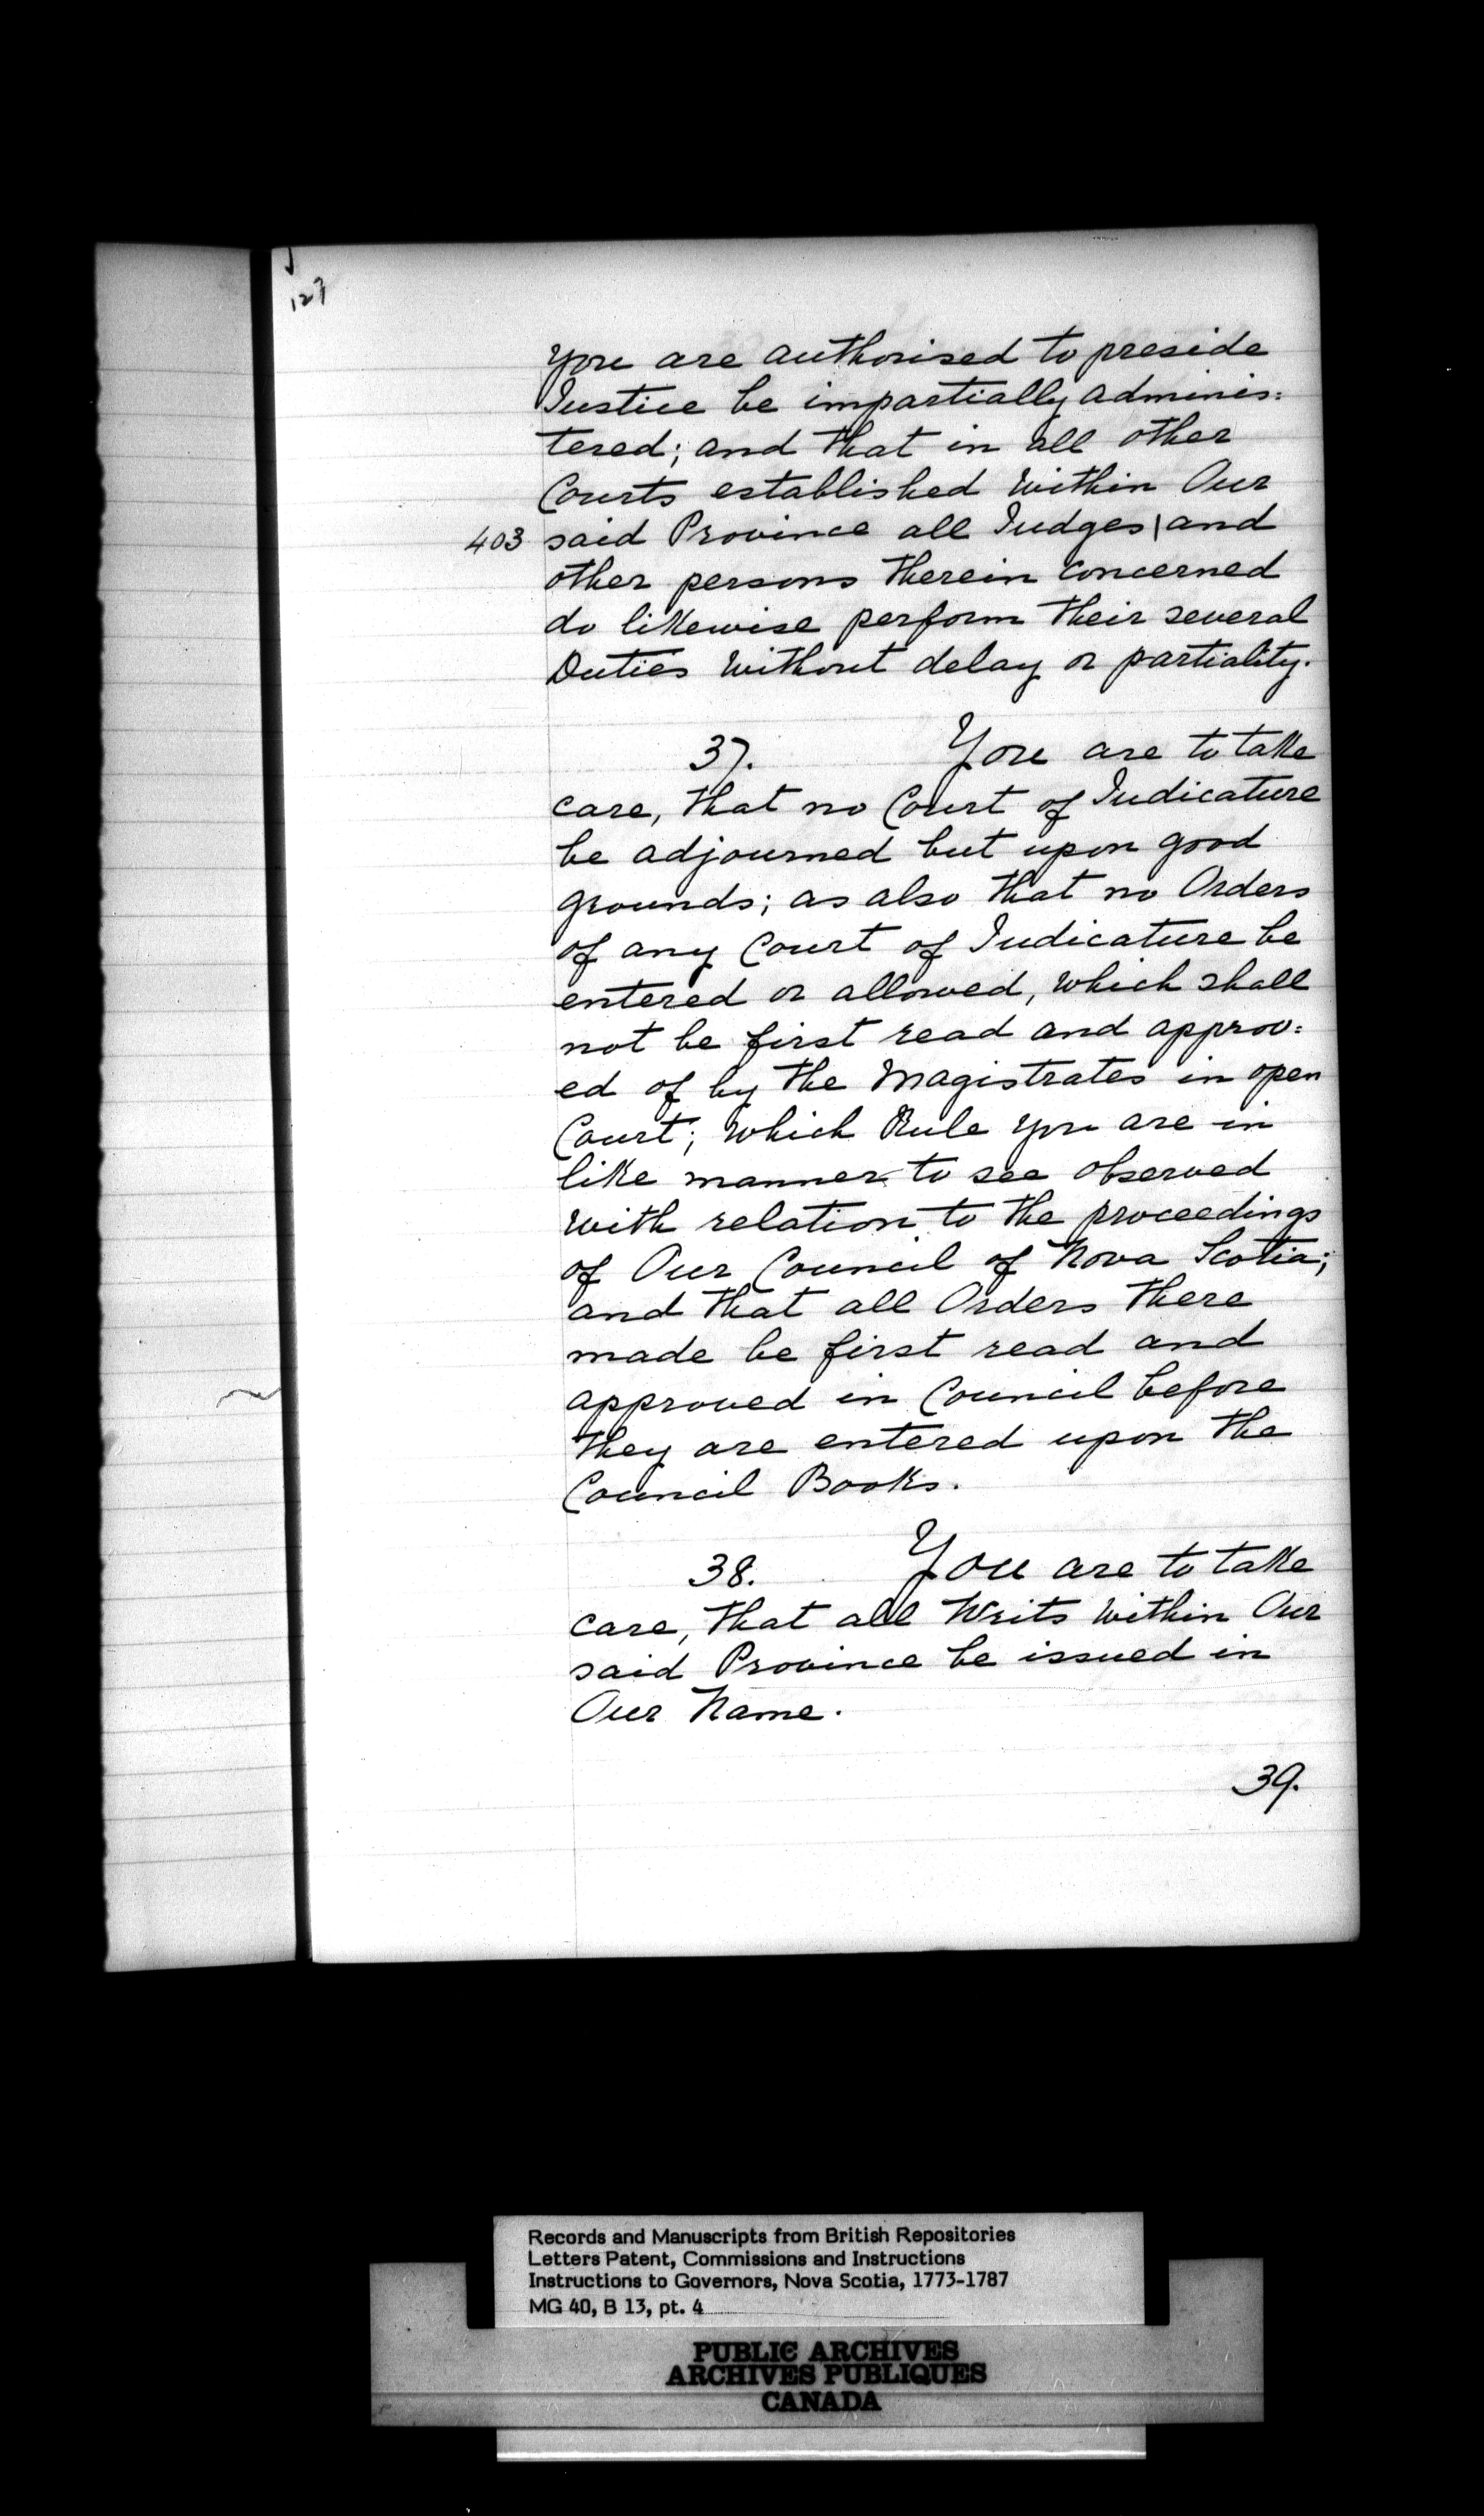 127
you are authorised to preside
Justice be impartially adminis:
tered; and that in all other
Courts established within Our
403 said Province all Judges | and
other persons therein concerned
do likewise perform their several
Duties without delay or partiality.
37. You are to take
care, that no Court of Judicature
be adjourned but upon good
grounds; as also that no Orders
of any Court of Judicature be
entered or allowed, which shall
not be first read and approv:
ed of by the Magistrates in open
Court; which Rule you are in
like manner to see observed
with relation to the proceedings
of Our Council of Nova Scotia;
and that all Orders there
made be first read and
approved in Council before
they are entered upon the
Council Books.
38. You are to take
care, that all Writs within Our
said Province be issued in
Our Name.
39.
Records and Manuscripts from British Repositories
Letters Patent, Commissions and Instructions
Instructions to Governors, Nova Scotia, 1773-1787
MG 40, B 13, pt. 4
PUBLIC ARCHIVES
ARCHIVES PUBLIQUES
CANADA